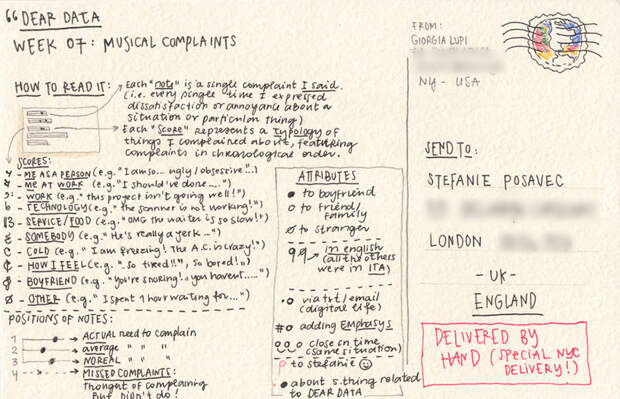 “ DEAR DATA
WEEK 07: MUSICAL COMPLAINTS
HOW TO READ IT:
Each "note" is a single complaint I said.
(i.e. every single time I expressed
dissatisfaction or annoyance about a
situation or particular thing)
Each "Score" represents a typology of
things I complained about, featuring
complaints in chronological order.
SCORES:
- ME AS A PERSON (e.g. "I am so... ugly / obsessive"...)
- ME AT WORK (e.g. "I should've done.....")
- WORK (e.g. "this project isn't going well!")
b - TECHNOLOGY (e.g. "The scanner is not working!")
B - SERVICE/FOOD (e.g. "OMG the waiter is so slow!")
- SOMEBODY (e.g. "He's really a jerk...")
C - COLD (e.g. "I am freezing! The A.C. is crazy!")
- HOW I FEEL (e.g. "..so tired!!", so bored!..)
- BOYFRIEND (e.g. "You're snoring!.. you haven't.....")
- OTHER (e.g. "I spent 1 hour waiting for...")
POSITIONS OF NOTES:
1 ACTUAL need to complain
2 average " " "
3 NO REAL " " "
4 MISSED COMPLAINTS:
Thought of complaining
But Didn't do!
ATTRIBUTES
to boyfriend
to friend/
family
to stranger
in english
(all the others
were in ITA)
via txt/email
(digital life)
# adding EMPHASYS
close in time
(same situation)
to stefanie
about s.thing related
to DEAR DATA
FROM:
GIORGIA LUPI
NY - USA
SEND TO:
STEFANIE POSAVEC
LONDON
- UK -
ENGLAND
DELIVERED BY
HAND (SPECIAL NYC
DELIVERY!)